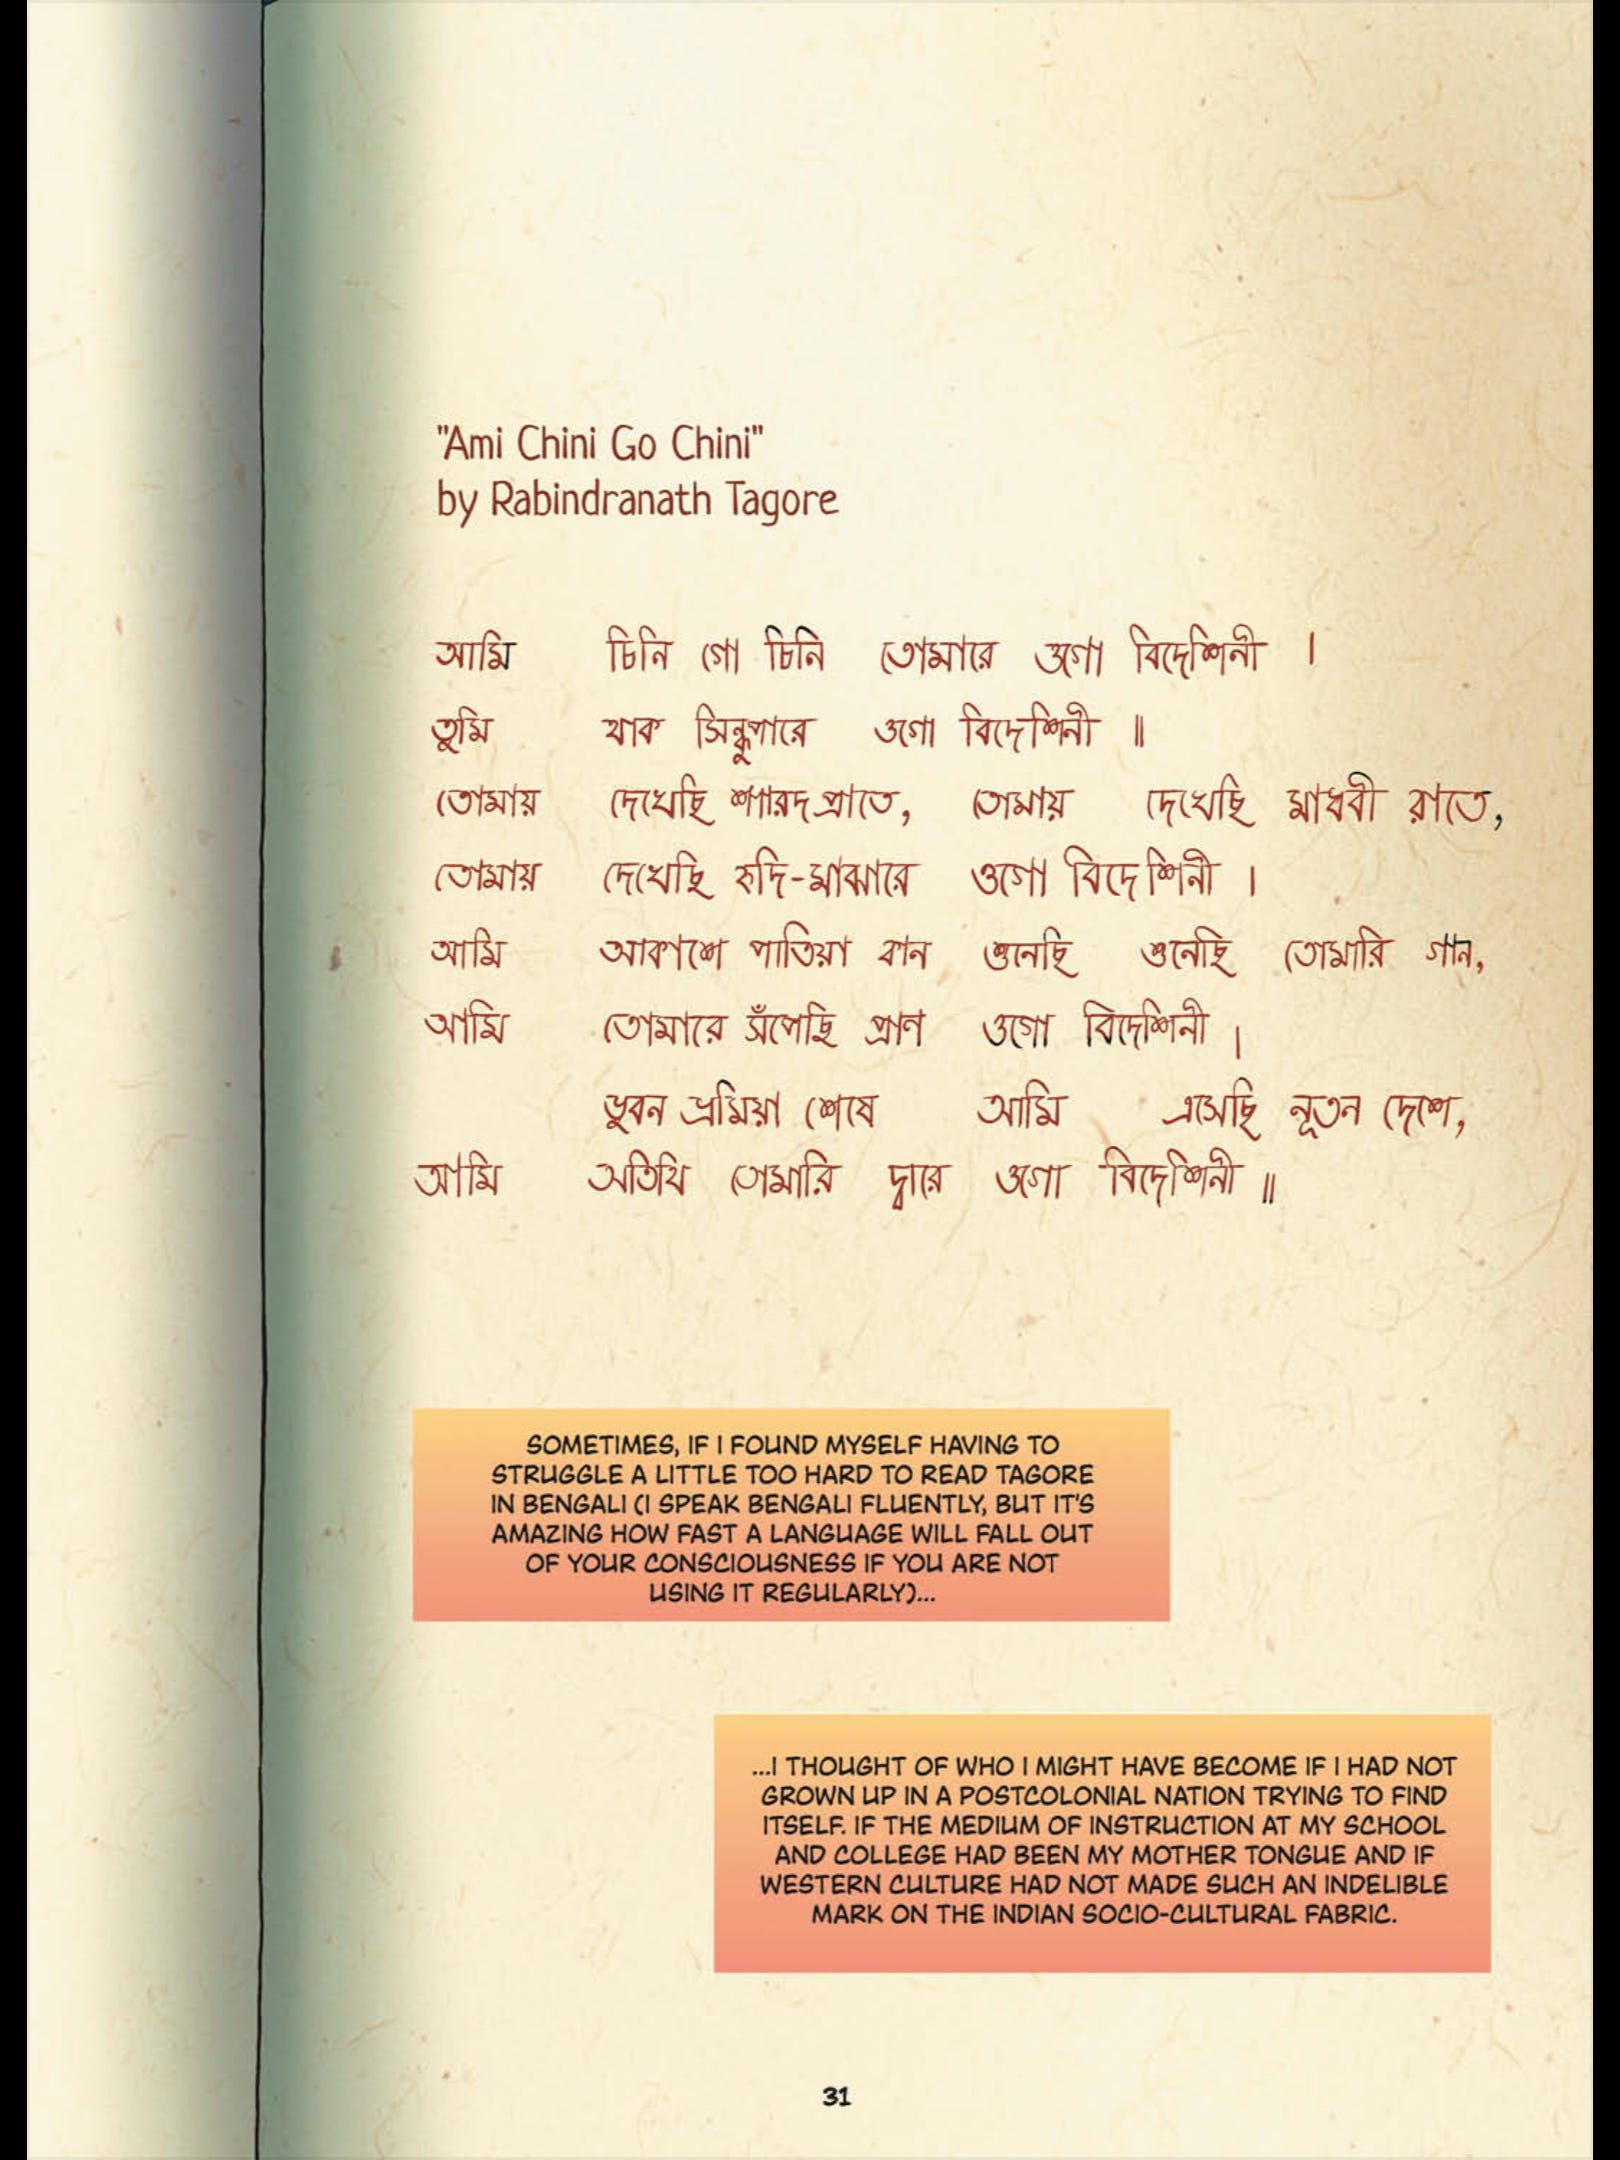 "Ami Chini Go Chini"
by Rabindranath Tagore
আমি চিনি গো চিনি তোমারে ওগো বিদেশিনী ।
তুমি থাক সিন্ধুপারে ওগো বিদেশিনী ॥
তোমায় দেখেছি শারদপ্রাতে, তোমায় দেখেছি মাধবী রাতে,
তোমায় দেখেছি হৃদি-মাঝারে ওগো বিদেশিনী ।
আমি আকাশে পাতিয়া কান শুনেছি শুনেছি তোমারি গান,
আমি তোমারে সঁপেছি প্রাণ ওগো বিদেশিনী ।
ভুবন ভ্রমিয়া শেষে আমি এসেছি নূতন দেশে,
আমি অতিথি তোমারি দ্বারে ওগো বিদেশিনী ॥
SOMETIMES, IF I FOUND MYSELF HAVING TO
STRUGGLE A LITTLE TOO HARD TO READ TAGORE
IN BENGALI (I SPEAK BENGALI FLUENTLY, BUT IT'S
AMAZING HOW FAST A LANGUAGE WILL FALL OUT
OF YOUR CONSCIOUSNESS IF YOU ARE NOT
USING IT REGULARLY)...
...I THOUGHT OF WHO I MIGHT HAVE BECOME IF I HAD NOT
GROWN UP IN A POSTCOLONIAL NATION TRYING TO FIND
ITSELF. IF THE MEDIUM OF INSTRUCTION AT MY SCHOOL
AND COLLEGE HAD BEEN MY MOTHER TONGUE AND IF
WESTERN CULTURE HAD NOT MADE SUCH AN INDELIBLE
MARK ON THE INDIAN SOCIO-CULTURAL FABRIC.
31